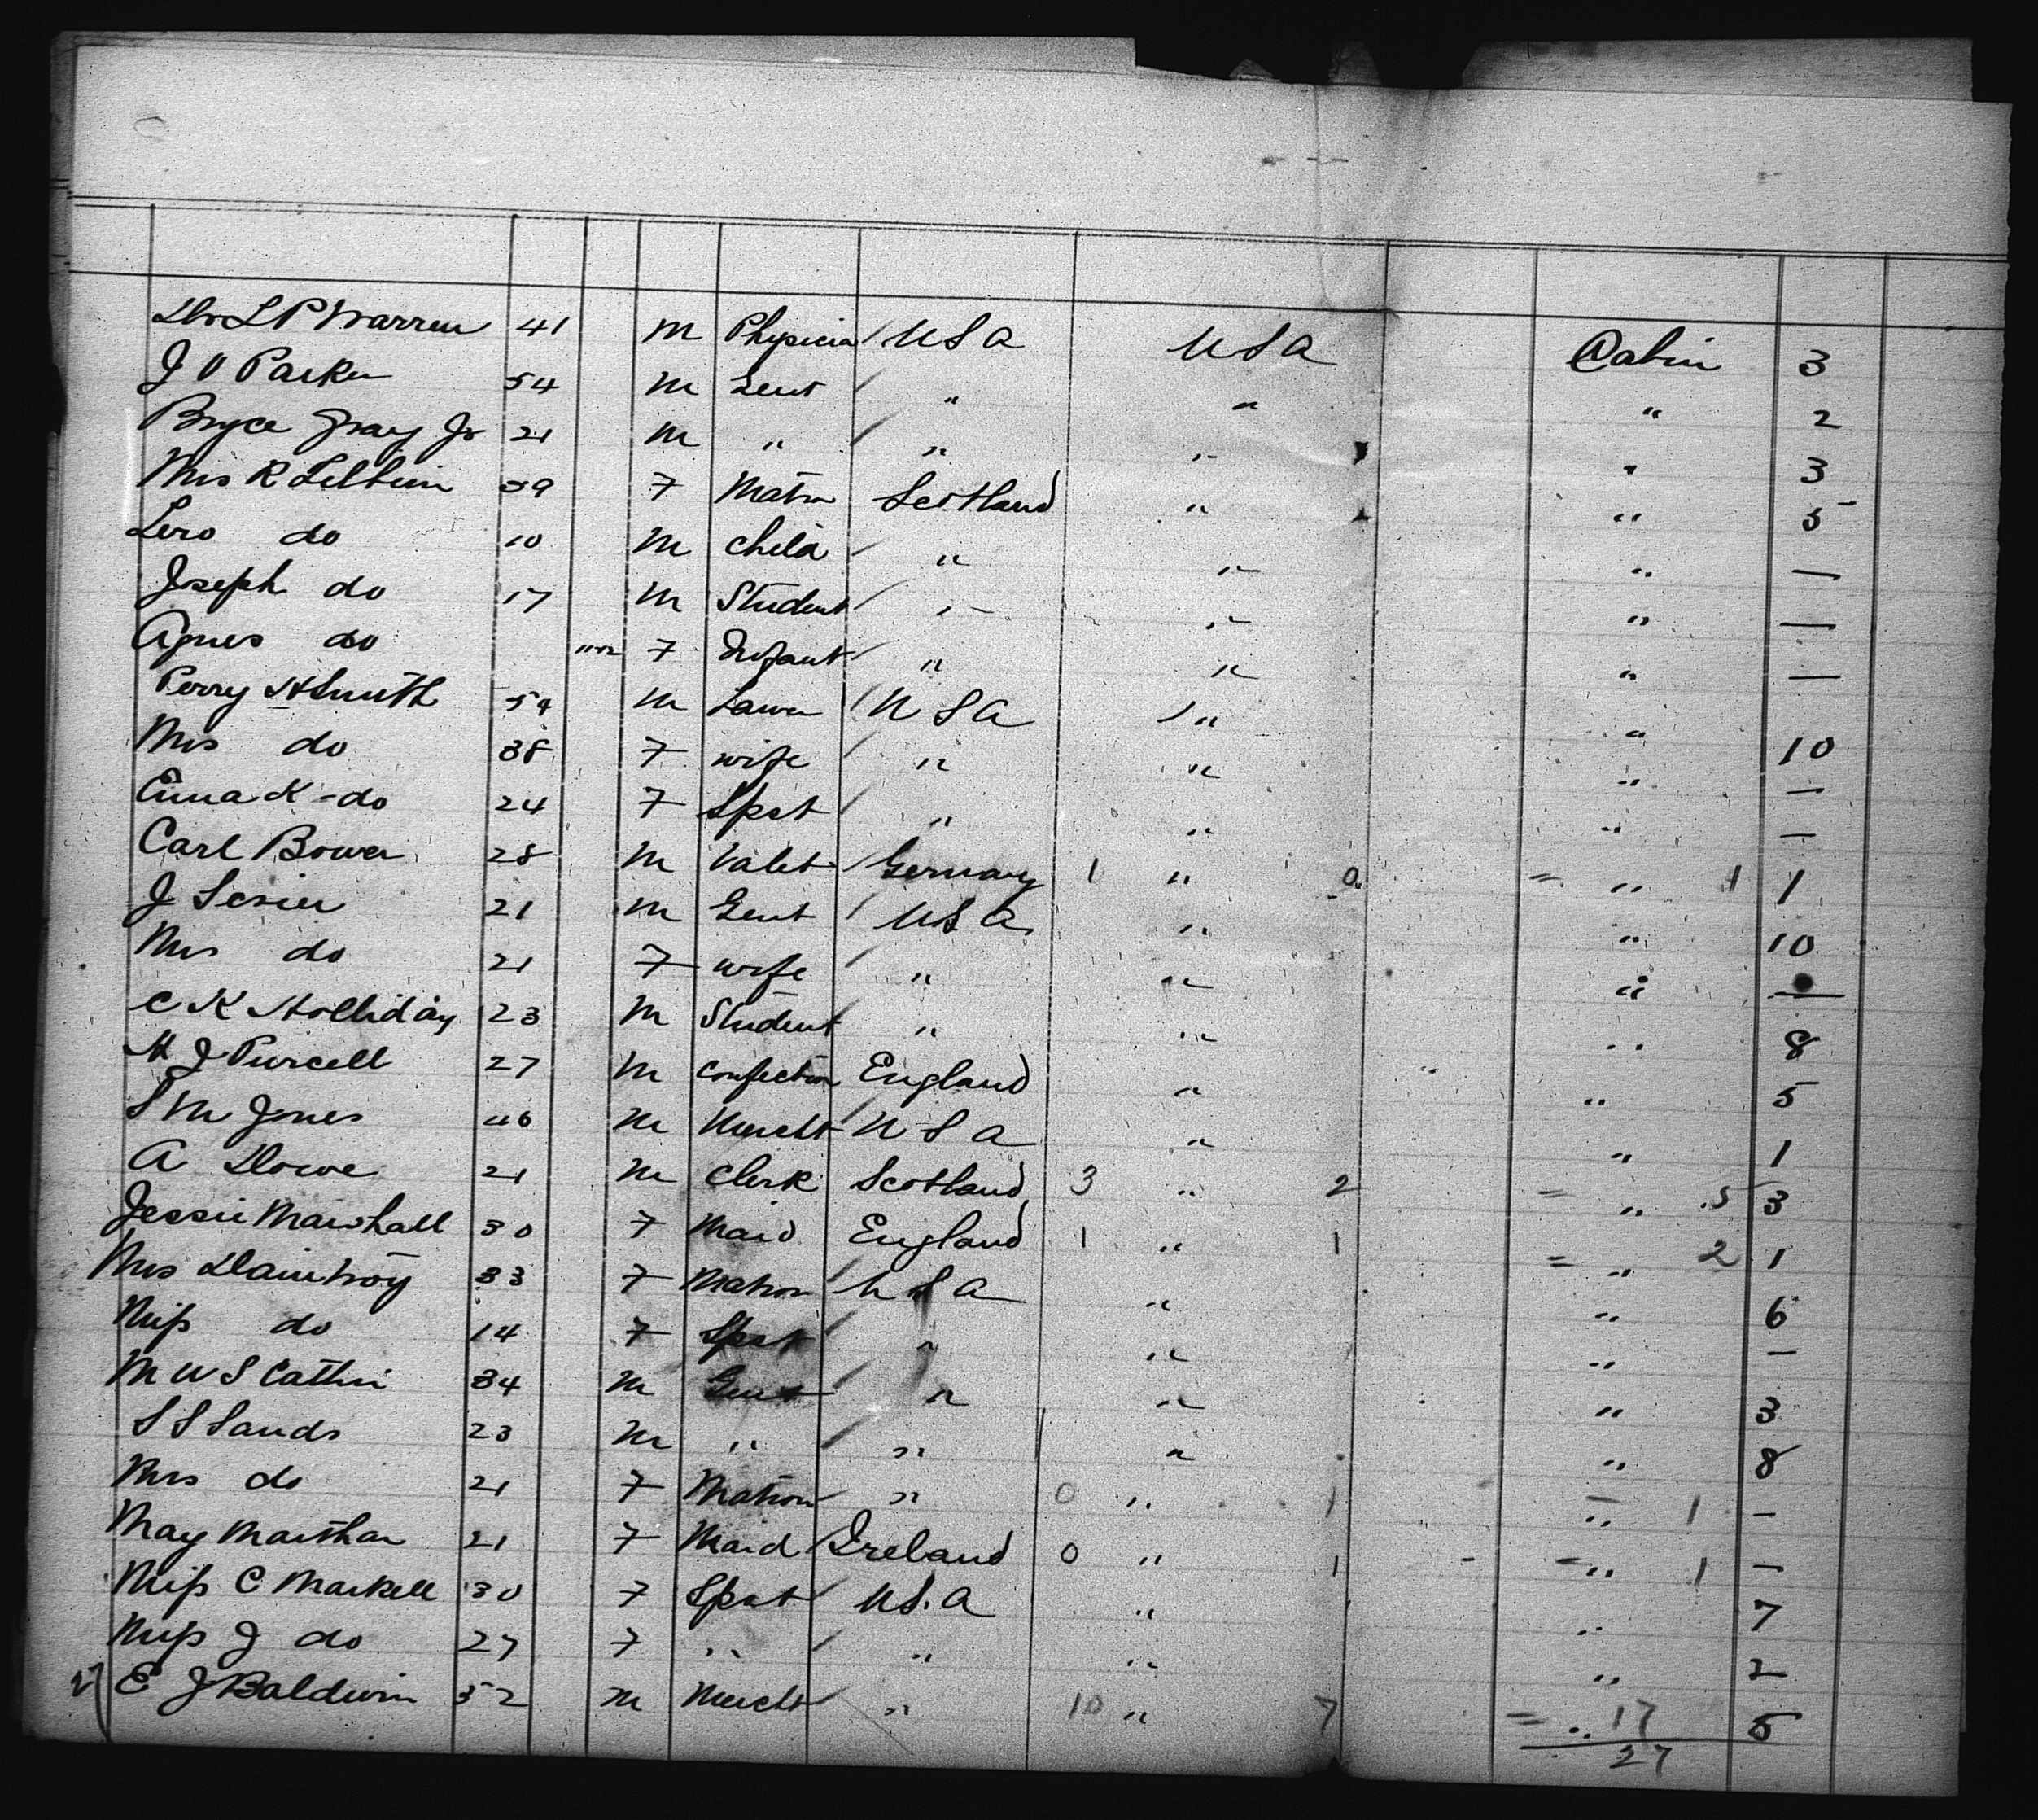 Dr L P Warren 41 M Physician USA USA Cabin 3
J V Parker 54 M Gent " " " 2
Bryce Gray Jr 21 M " " " " 3
Mrs R 39 F Matrn Scotland " " 5
do 10 M Child " " " —
Joseph do 17 M Student " " " —
Agnes do F Infant " " " —
Perry H Smith 54 M USA " " 10
Mrs do 38 F wife " " " —
Emma K - do 24 F Spst " " " —
Carl Bower 28 M Valet Germany 1 " 0 = " 1 1
J 21 M Gent USA " " 10
Mrs do 21 F wife " " " —
C K Holliday 23 M Student " " " 8
M J Purcell 27 M Confection England " " 5
S M Jones 46 M Mercht USA " " 1
A Dowe 21 M Clerk Scotland 3 " 2 = " 5 3
Jessie Marshall 30 F Maid England 1 " 1 = " 2 1
Mrs 33 F Matron USA " " 6
Miss do 14 F Spst " " " —
M W S 34 M Gent " " " 3
S S Sands 23 M " " " " 8
Mrs do 21 F Matron " 0 " 1 = " 1 —
May 21 F Maid Ireland 0 " 1 = " 1 —
Miss C Markell 30 F Spst U.S.A " " 7
Miss J do 27 F " " " " 2
27 E J Baldwin 52 M Mercht " 10 " 7 = " 17 5
27